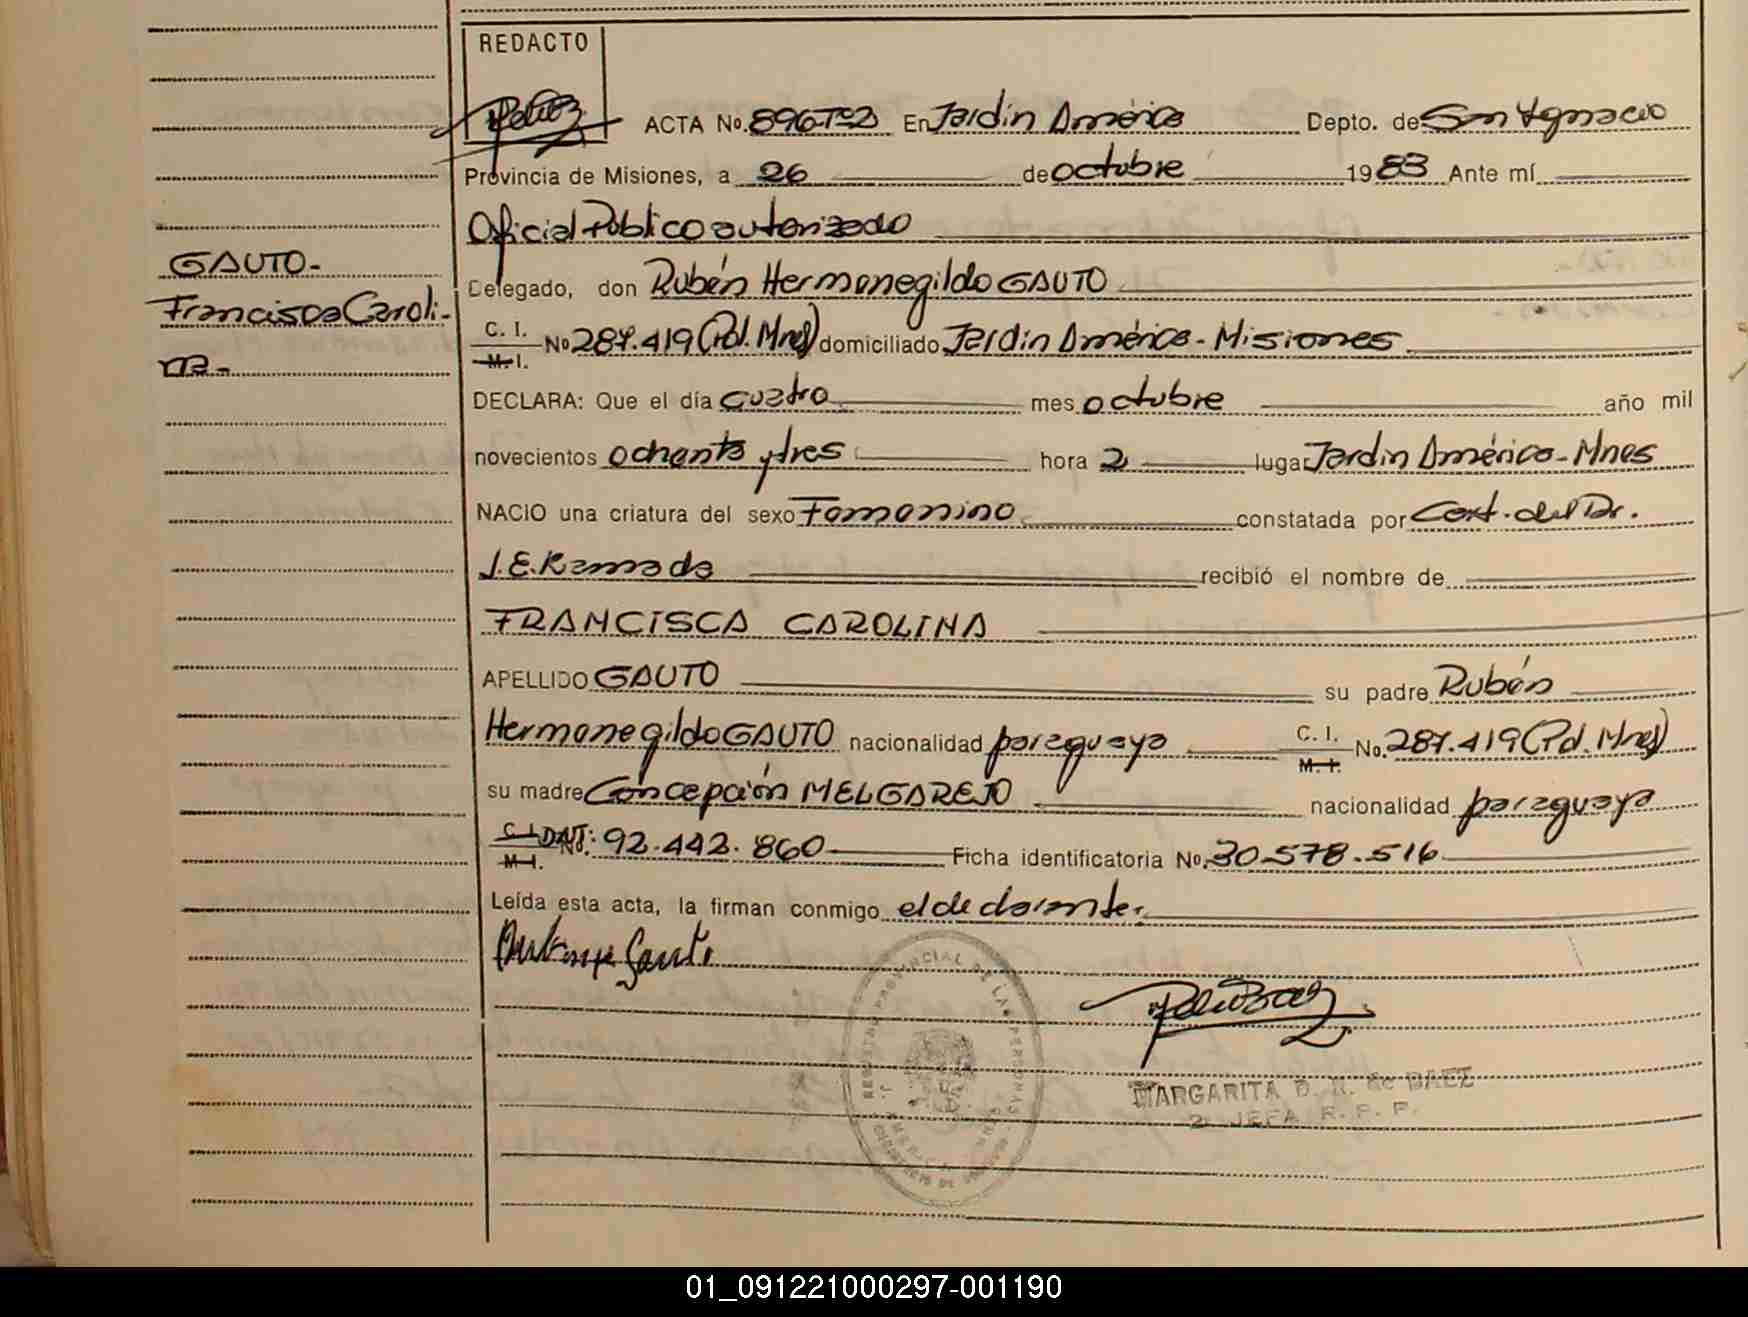 REDACTO
ACTA No. 896-Tº2 En Jardín América Depto. de San Ignacio
Provincia de Misiones, a 26 de octubre 1983 Ante mí
Oficial Público autorizado
GAUTO-
Delegado, don Rubén Hermenegildo GAUTO
Francisca Caroli-
C. I. No 287.419 (Pol. Mnes) domiciliado Jardín América - Misiones
M. I.
na-
DECLARA: Que el día cuatro mes octubre año mil
novecientos ochenta y tres hora 2 lugar Jardín América - Mnes
NACIO una criatura del sexo Femenino constatada por Cert. del Dr.
J.E. Ramada recibió el nombre de
FRANCISCA CAROLINA
APELLIDO GAUTO su padre Rubén
Hermenegildo GAUTO nacionalidad paraguaya C. I. No. 287.419 (Pol. Mnes)
M. I.
su madre Concepción MELGAREJO nacionalidad paraguaya
C. I. DNI: No. 92.442.860 Ficha identificatoria No. 30.578.516
M. I.
Leída esta acta, la firman conmigo el declarante.
Gauto
REGISTRO PROVINCIAL DE LAS PERSONAS
MARGARITA de BAEZ
JEFA R. P. P.
01_091221000297-001190